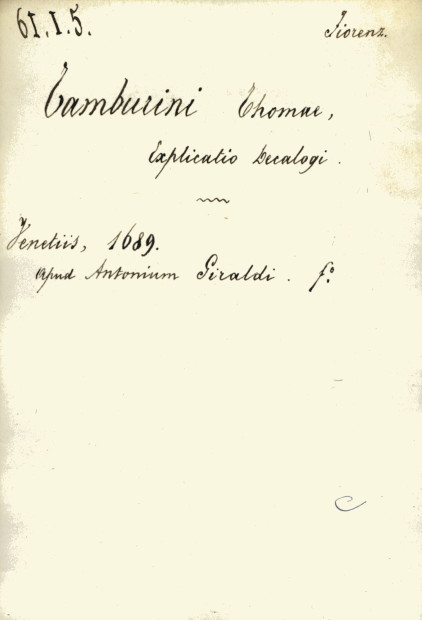 61.1.5. Fiorenz.
Tamburini Thomae,
Explicatio Decalogi.
Venetiis, 1689.
apud Antonium Giraldi. fº
C